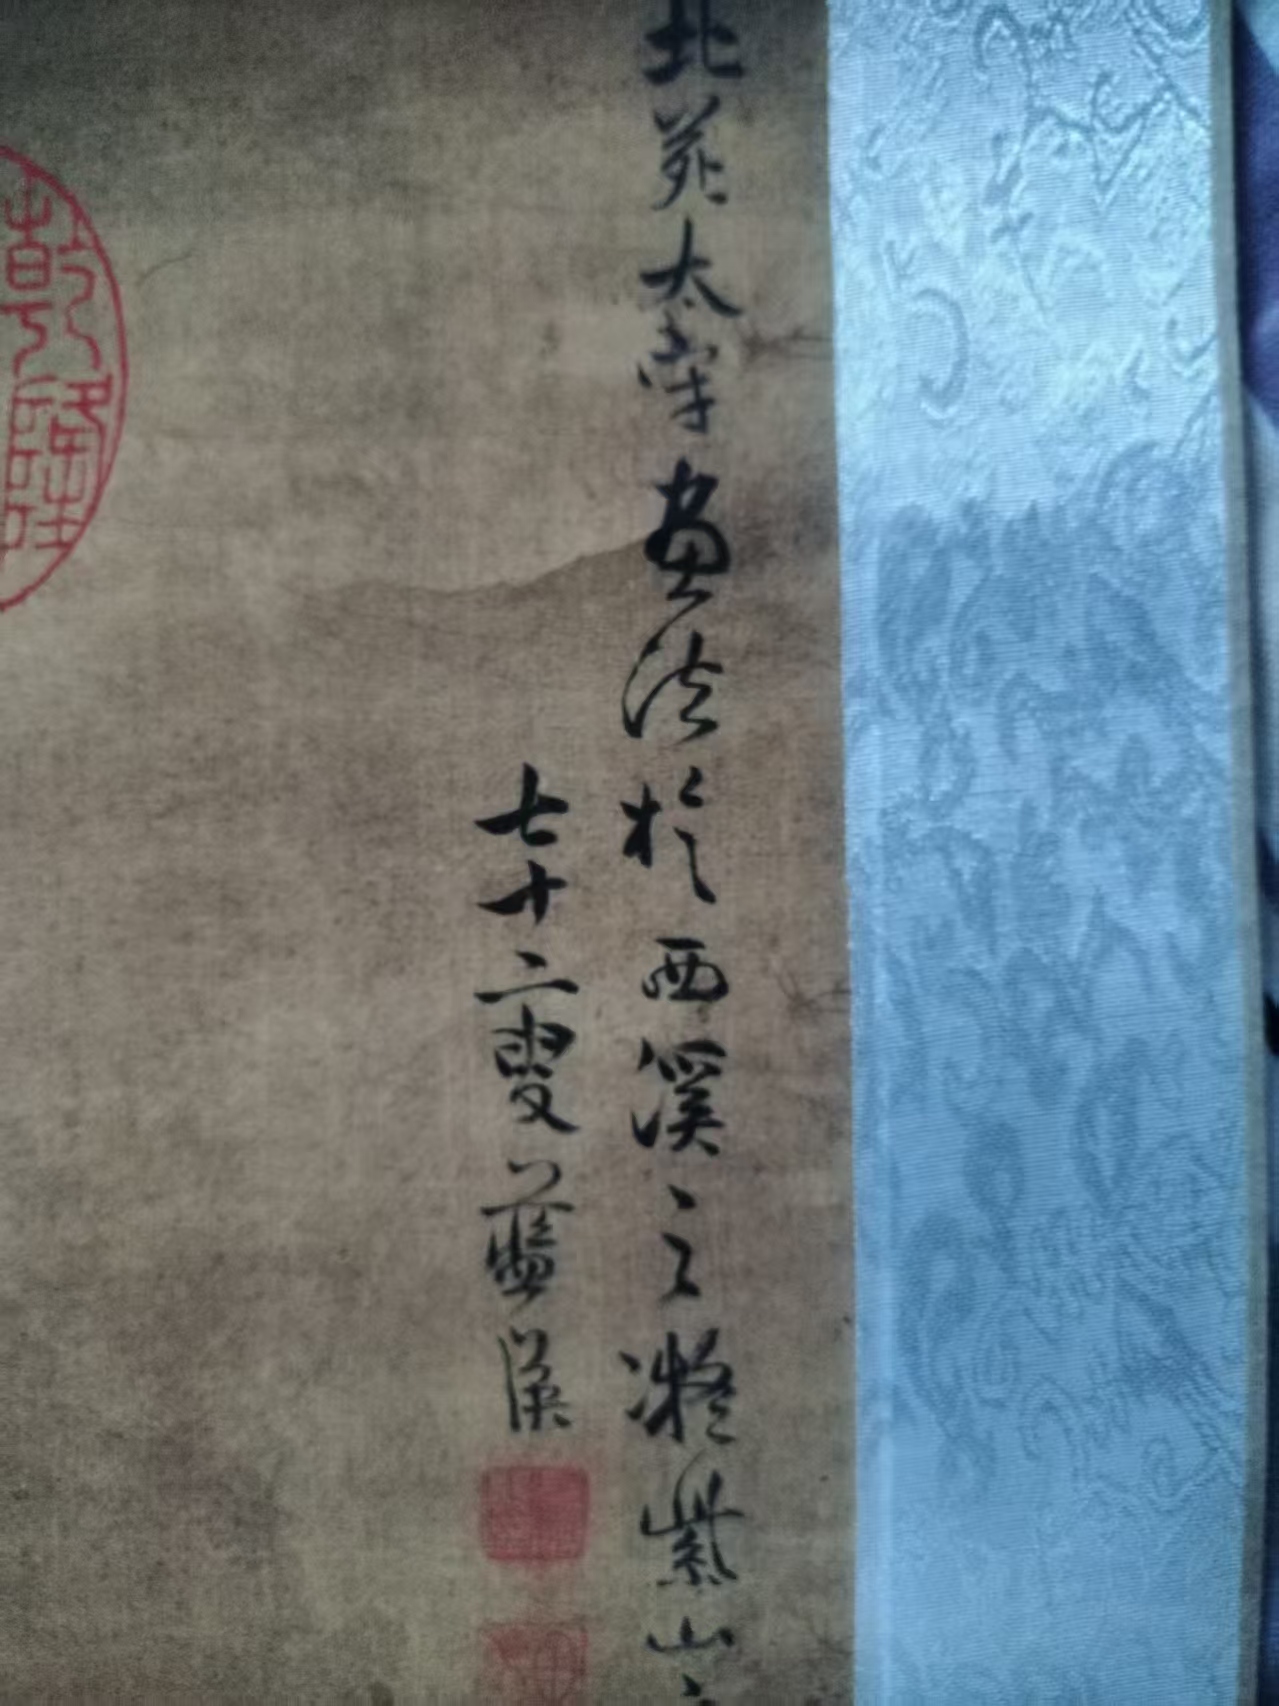 北苑太宰画法於西溪之凝紫山
七十二叟蓝漢
乾隆